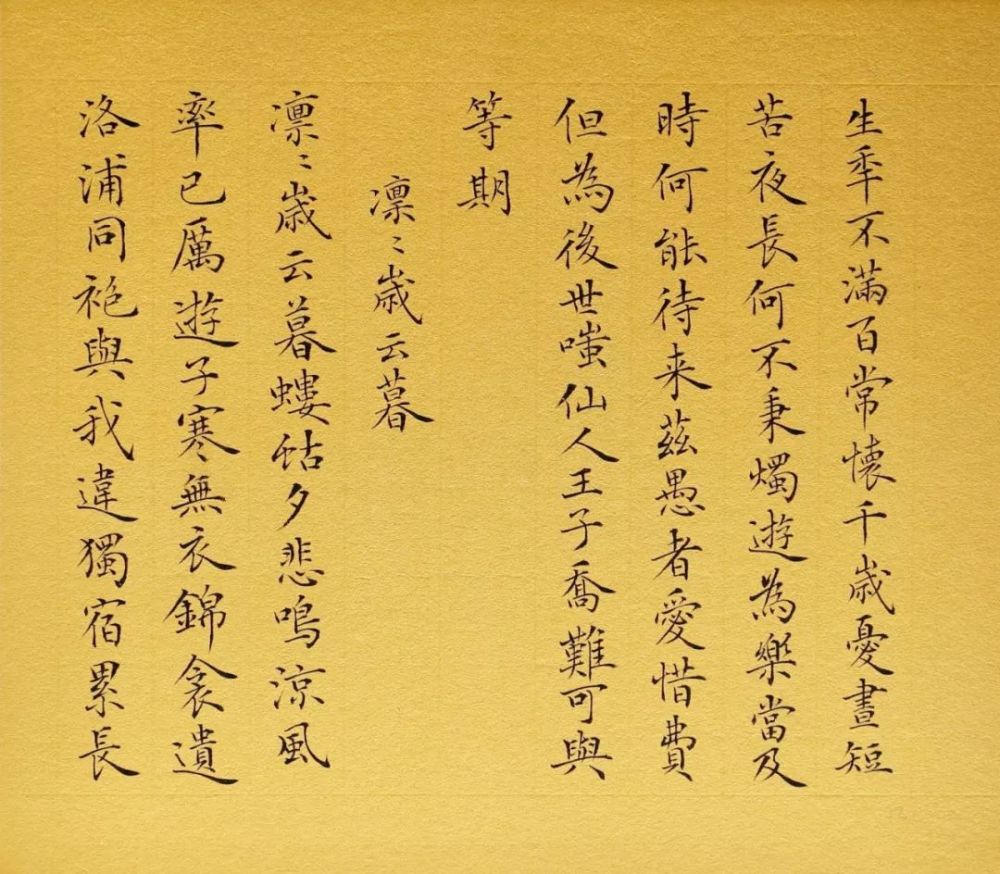 生秊不滿百常懷千歲憂晝短
苦夜長何不秉燭遊為樂當及
時何能待来茲愚者愛惜費
但為後世嗤仙人王子喬難可與
等期
凛〻歲云暮
凛〻歲云暮螻蛄夕悲鳴涼風
率已厲遊子寒無衣錦衾遺
洛浦同袍與我違獨宿累長